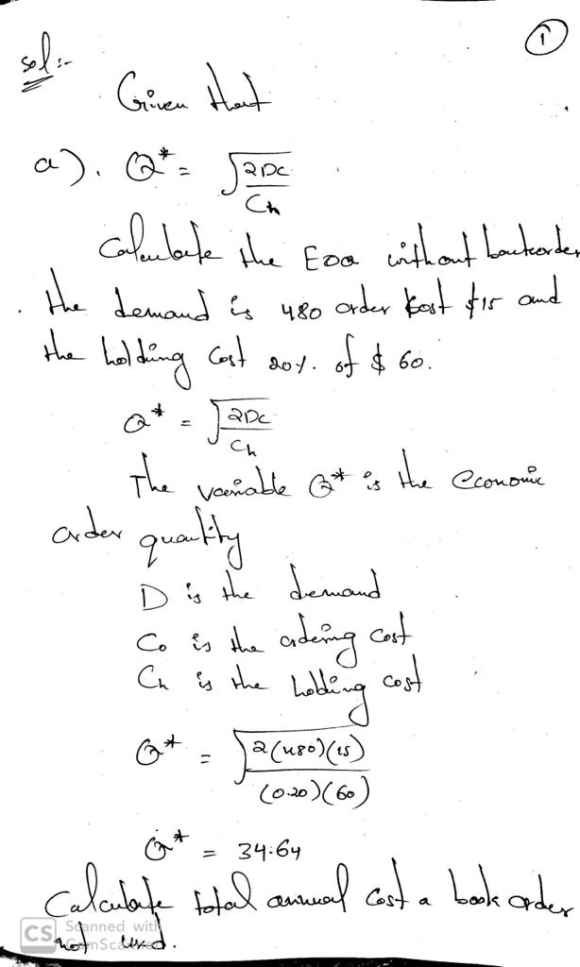 ①
sol:-
Given that
a). Q* = √2DC
Ch
Calculate the EOQ without backorder
the demand is 480 order cost $15 and
the holding cost 20%. of $ 60.
Q* = √2DC
Ch
The variable Q* is the economic
order quantity
D is the demand
Co is the ordering cost
Ch is the holding cost
Q* = √2(480)(15)
(0.20)(60)
Q* = 34.64
Calculate total annual cost a back order
not used.
CS Scanned with
CamScanner